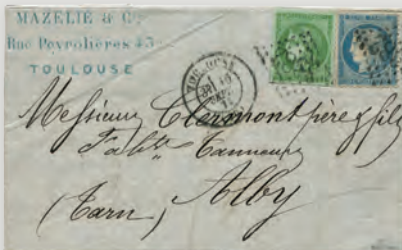 MAZELIÉ & Cie
Rue Peyrolières 43
TOULOUSE
TOULOUSE
Messieurs Clermont père & fils
Fabts Tanneurs
Alby
(Tarn)